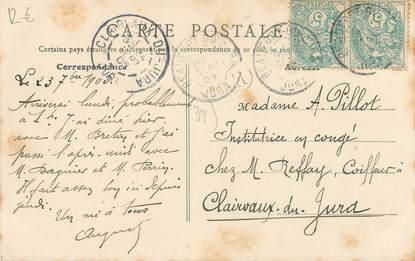 12 €
CARTE POSTALE
Certains pays étrangers n'acceptant pas la correspondance de ce côté, se ren
CLAIRVAUX-DU-JURA
Correspondance
Adresse
39
Le 23 7bre 1905.
Arriverai lundi, probablement
à 1h ¾. J'ai dîné hier,
avec M. Breton et j'ai
passé l'après-midi avec
M. Bagnier et M. Perrin.
Il fait assez bon ici depuis
jeudi.
Un mi à tous
August
Madame A. Pillot
Institutrice en congé
chez M. Reffay, Coiffeur à
Clairvaux-du-Jura